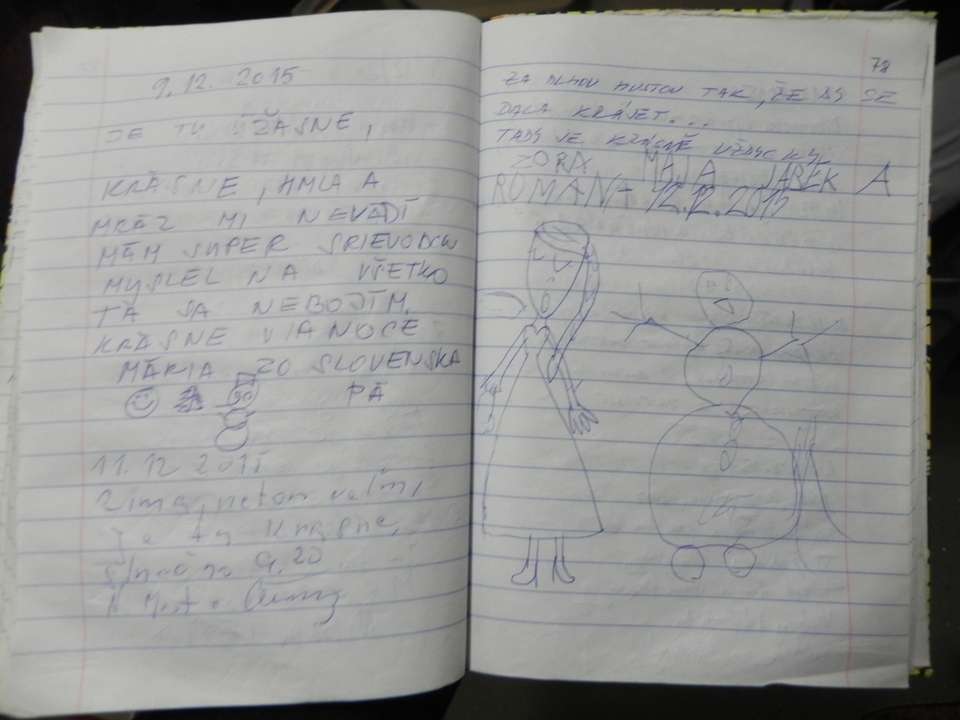 9.12. 2015
JE TU ÚŽASNE,
KRÁSNE, HMLA A
MRÁZ MI NEVADÍ
MÁM SUPER SPRIEVODCU
MYSLEL NA VŠETKO
TA SA NEBOJÍM.
KRÁSNE VIANOCE
MÁRIA ZO SLOVENSKA
PÁ
11.12 2015
Zima,
Je tu krásne,
9,20
78
ZA MLHOU HUSTOU TAK, ŽE BY SE
DALA KRÁJET...
TADY JE KRÁSNĚ VŽDYCKY
ZORA MÁJA JAREK A
ROMANA 12.12.2015